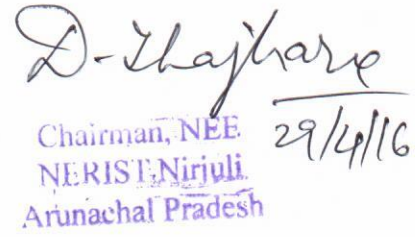 29/4/16
Chairman, NEE
NERIST, Nirjuli
Arunachal Pradesh